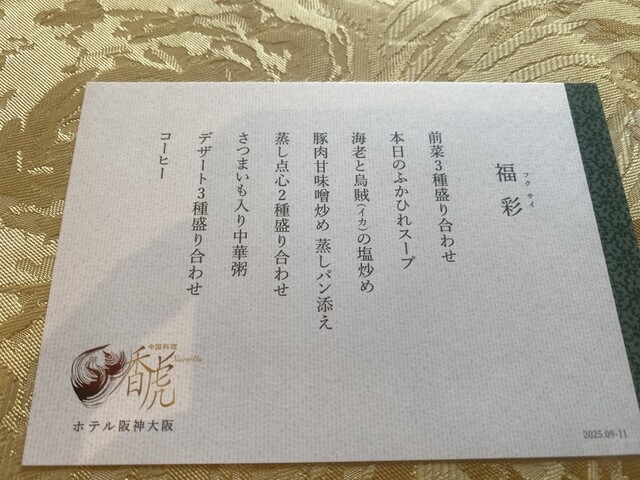 福彩
フクサイ
前菜3種盛り合わせ
本日のふかひれスープ
海老と烏賊(イカ)の塩炒め
豚肉甘味噌炒め 蒸しパン添え
蒸し点心2種盛り合わせ
さつまいも入り中華粥
デザート3種盛り合わせ
コーヒー
中国料理
香虎
ホテル阪神大阪
2025.09-11